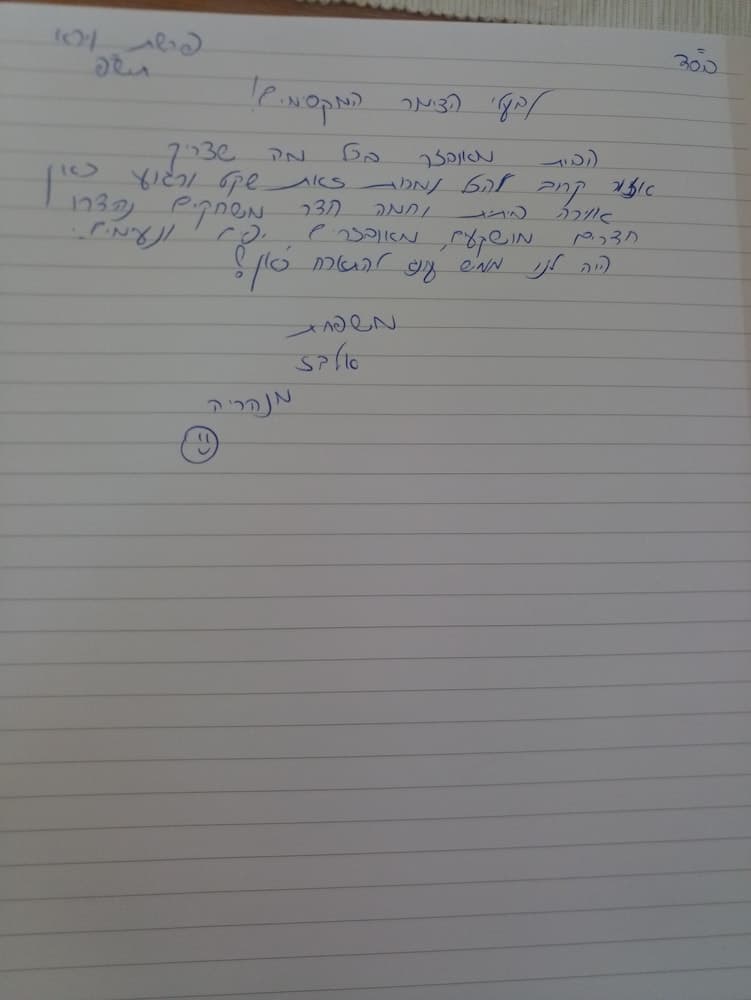 בס"ד
פרשת וירא
תש"פ
לבעלי הצימר המקסימים!
הבית מאובזר בכל מה שצריך
אזור קרוב להכל למרות זאת שקט ורגוע כאן
אוירה ביתית וחמה חדר משחקים נהדר
חדרים מושקעים, מאובזרים יפים ונעימים.
היה לנו ממש עונג להתארח כאן!
משפחת
אלבז
מנהריה